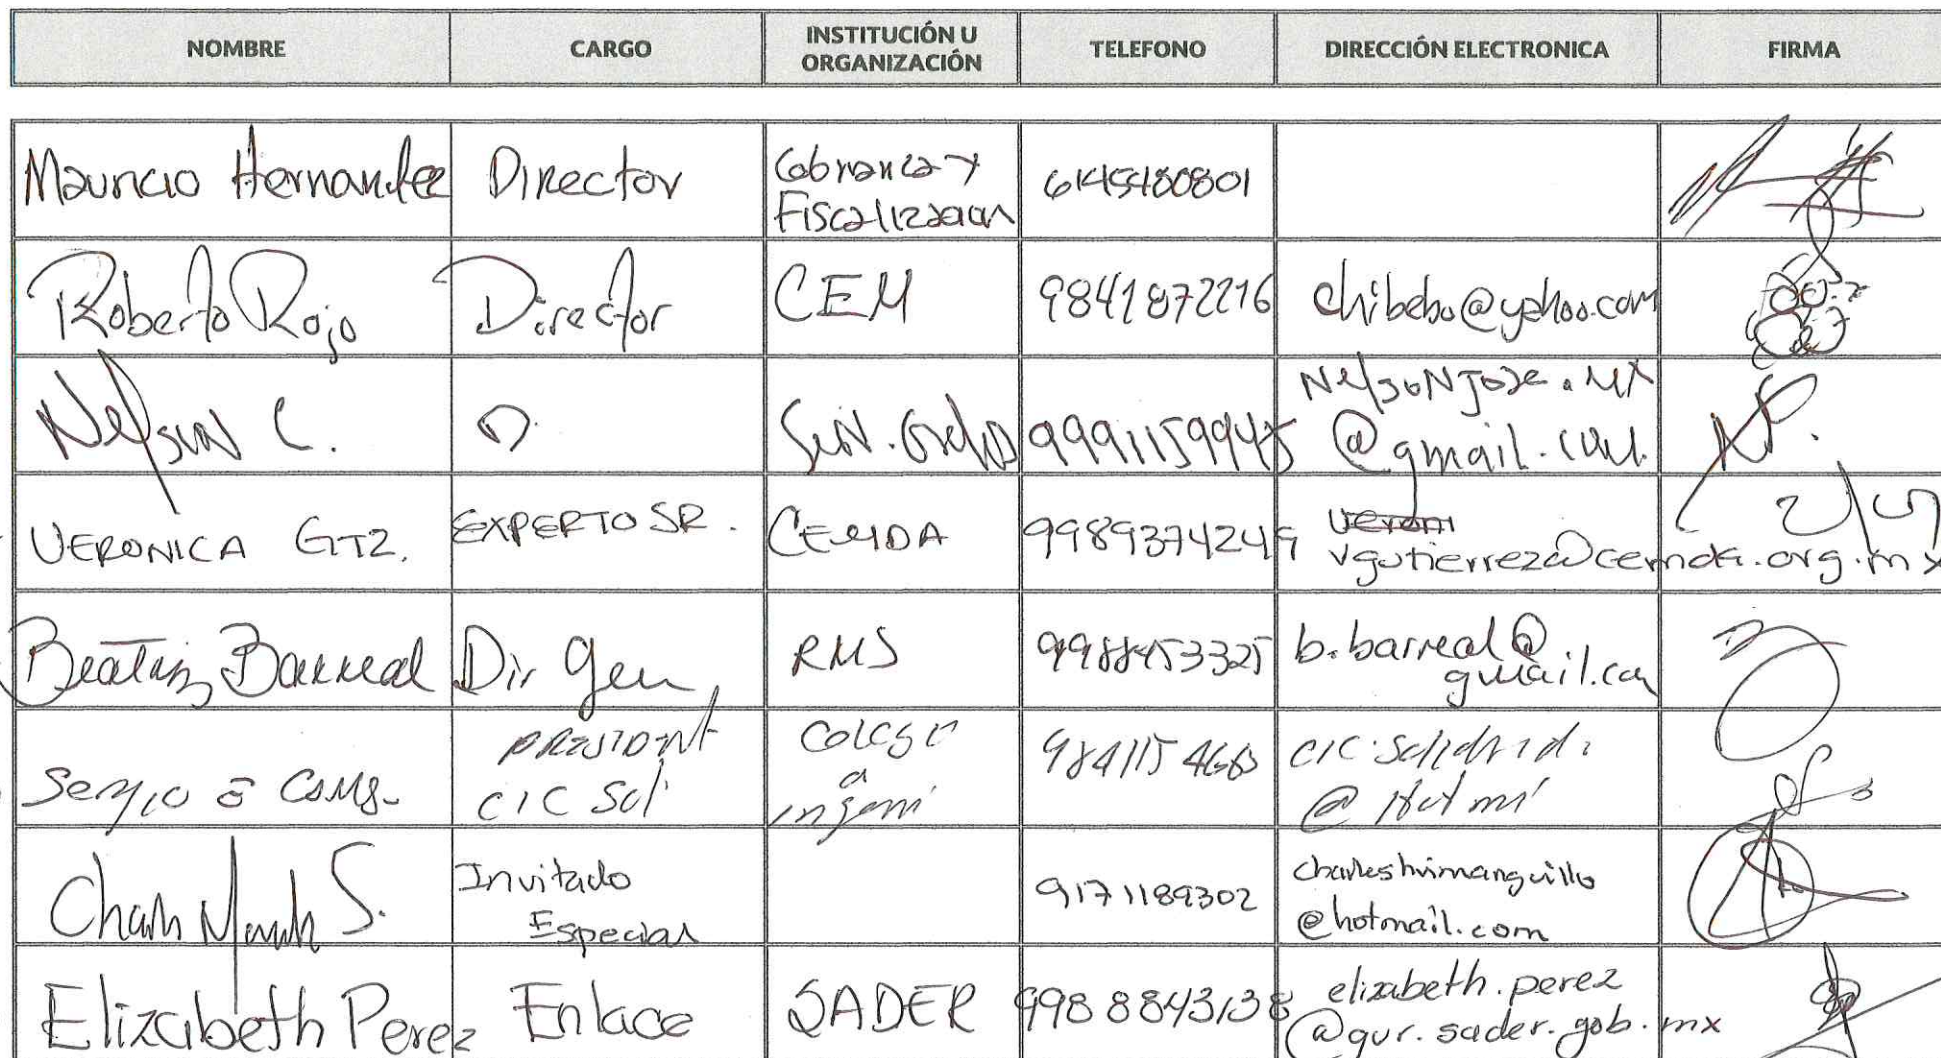 NOMBRE CARGO INSTITUCIÓN U ORGANIZACIÓN TELEFONO DIRECCIÓN ELECTRONICA FIRMA
Mauricio Hernandez Director Cobranza y
Fiscalización
Roberto Rojo Director CEM 9841872216 chibebo@yahoo.com
Nelson C. D. 9991159945 Nelsonjose.mx
@gmail.com
VERONICA GTZ. EXPERTO SR. CEMDA 9989374249
vgutierrez@cemda.org.mx
Beatriz Barreal Dir Gen RMS 9988453325 b.barreal@
gmail.com
Sergio PRESIDENT
CIC Sol
Invitado
Especial
9171189302 charleshuimanguillo
@hotmail.com
Elizabeth Perez Enlace SADER 998 8843138 elizabeth.perez
@qur.sader.gob.mx